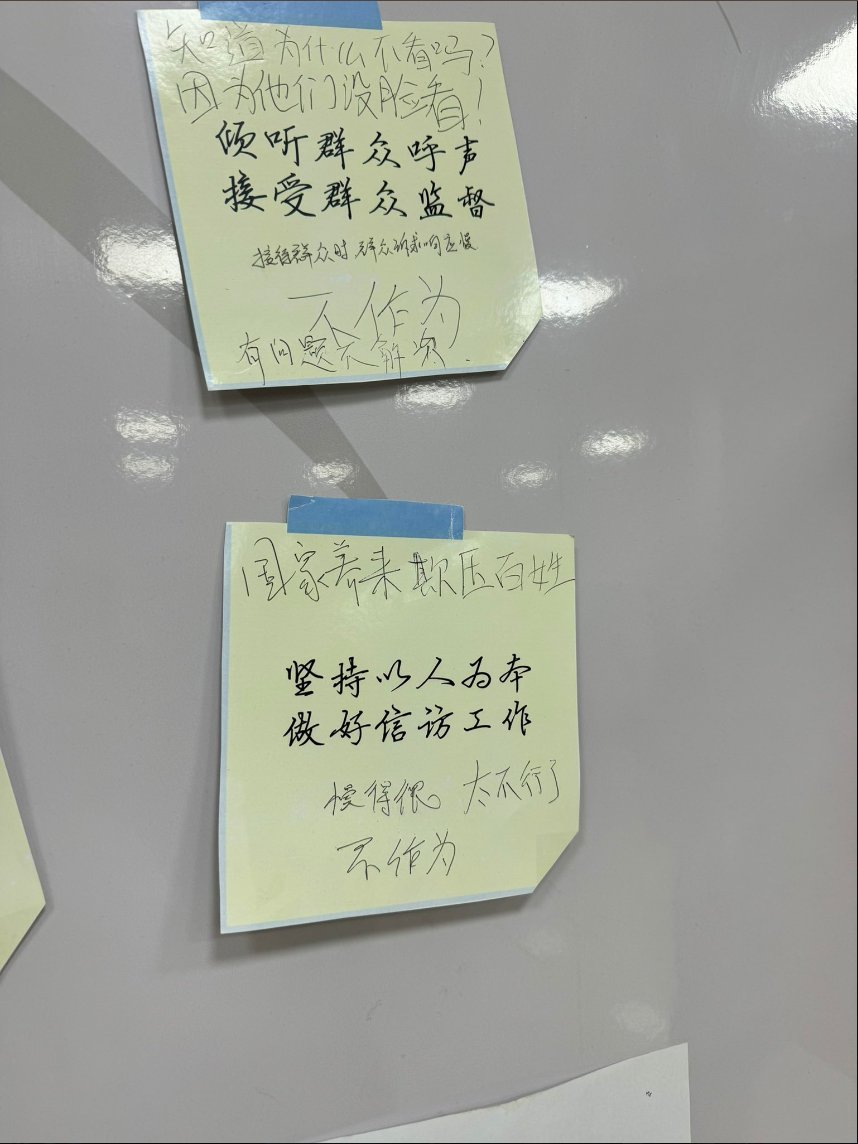 知道为什么不看吗?
因为他们没脸看!
倾听群众呼声
接受群众监督
接待群众时,群众诉求响应慢
不作为
有问题不解决.
国家养来欺压百姓
坚持以人为本
做好信访工作
慢得很。太不行了
不作为